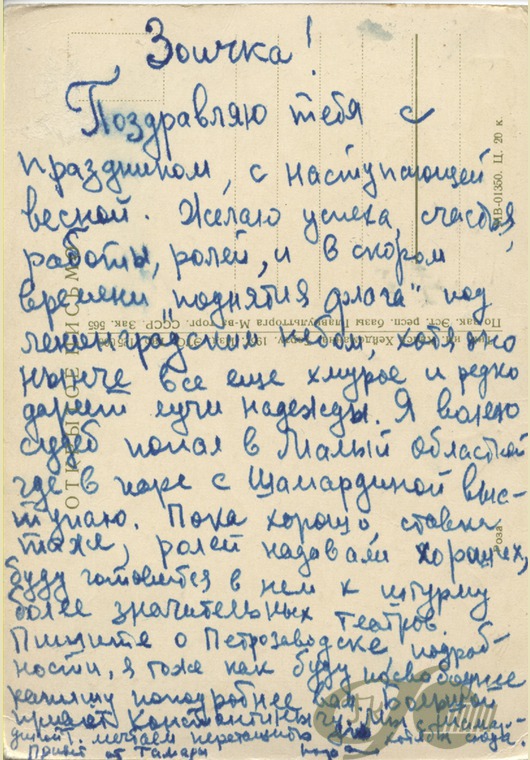 Зоичка!
Поздравляю тебя с
праздником, с наступающей
весной. Желаю успеха, счастья,
работы, ролей, и в скором
времени "поднятия флага" под
ленинградским небом, хотя оно
нынче все еще хмурое и редко
дарит лучи надежды. Я волею
судеб попал в Малый областной
где в паре с Шамардиной выс-
тупаю. Пока хорошо, ставка
таже, ролей надавали хороших,
буду готовится в нем к штурму
более значительных театров.
Пишите о Петрозаводске подроб-
ности, я тоже как буду посвободнее
напишу поподробнее вам. Большой
привет Константину
мечтаем перетащить хотябы сюда.
Привет от Тамары
ОТКРЫТОЕ ПИСЬМО
МВ-01350. Ц. 20 к.
По зак. Эст. респ. базы Главкультторга М-ва торг. СССР. Зак. 565